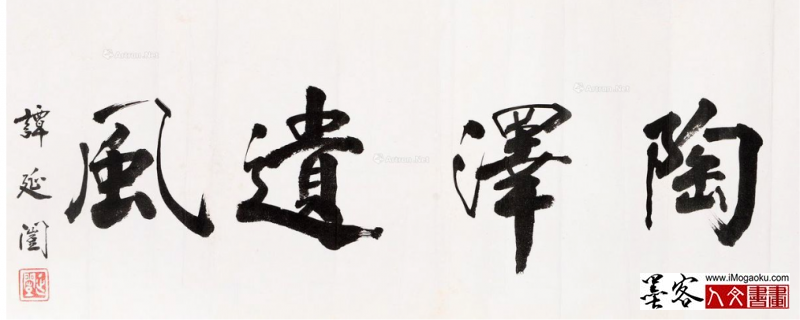 陶澤遺風
譚延闓
www.iMogaoku.com
墨客
人文書畫